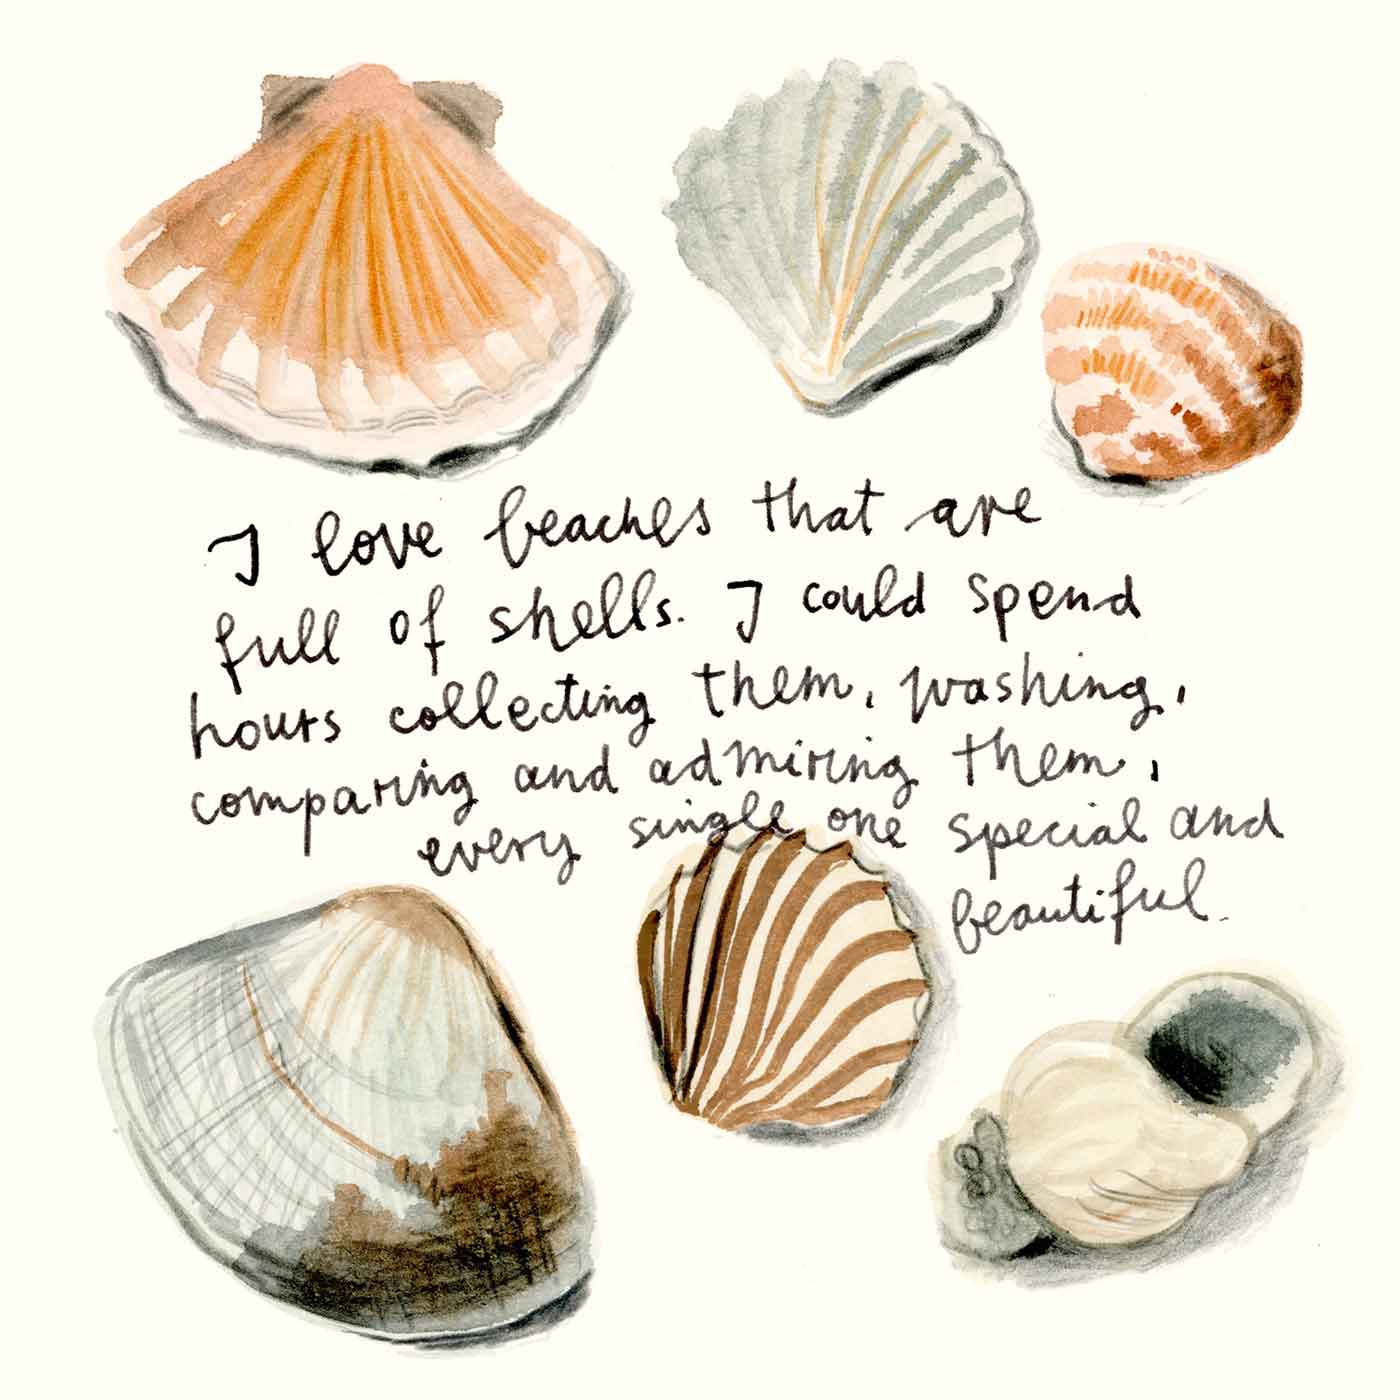 I love beaches that are
full of shells. I could spend
hours collecting them, washing,
comparing and admiring them,
every single one special and
beautiful.